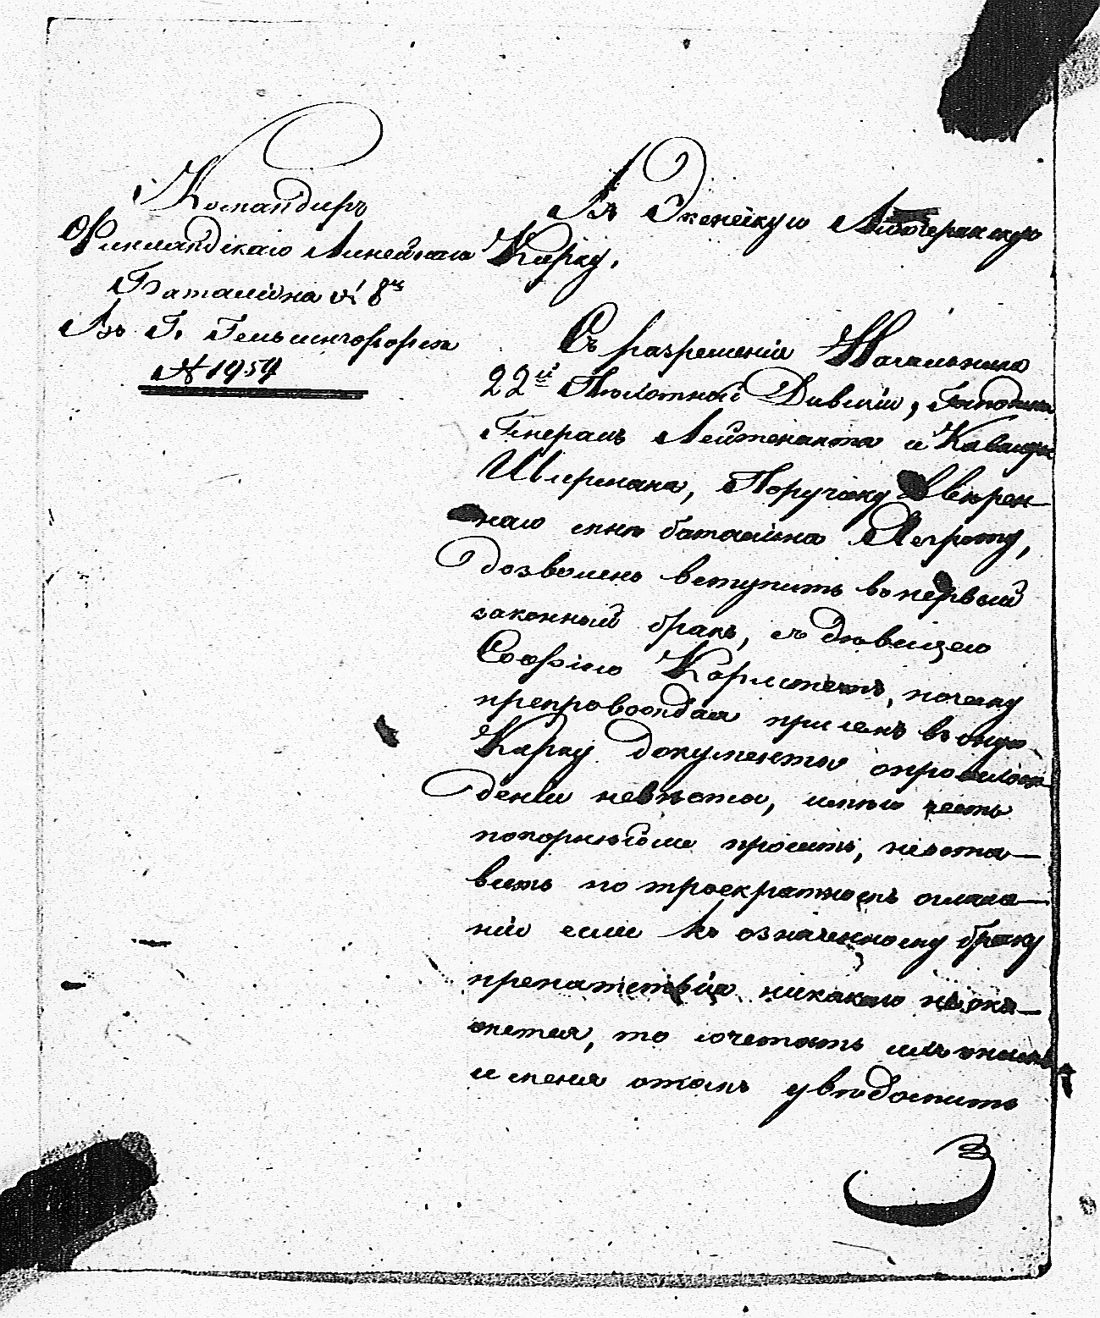 Командиръ
Финляндскаго Линейнаго
Баталіона № 8го
Въ Г. Гельсингфорсѣ
№ 1959
Въ Экнескую Лютеранскую
Кирку.
Съ разрешенія Начальника
22й Пѣхотной Дивизіи, Господина
Генералъ Лейтенанта и Кавалера
Поручику Ввѣрен-
наго мнѣ баталіона
дозволено вступить во первый
законный бракъ, съ дѣвицею
Софіею почему
препровождая при семъ въ оную
Кирку документы опроисхож-
деніи невѣсты, имѣю честь
покорнѣйше просить, неоста-
вить по троекратномъ оглаше-
ніи если къ означенному браку
препятствія никакого неока-
жется, то сочетать ихъ онымъ
и меня отомъ увѣдомить